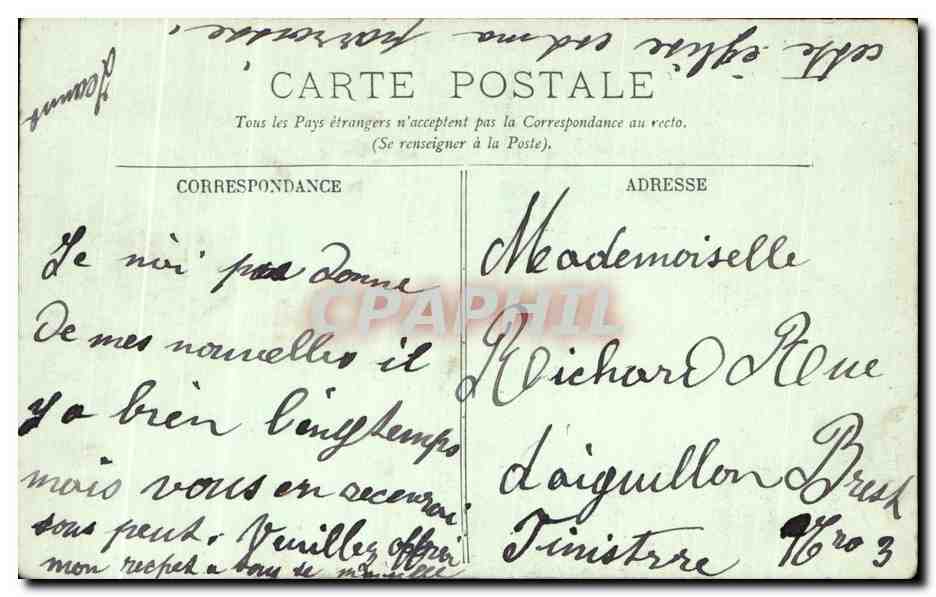 cette église est ma paroisse.
Jeanne
CARTE POSTALE
Tous les Pays étrangers n'acceptent pas la Correspondance au recto.
(Se renseigner à la Poste).
CORRESPONDANCE
Je n'ai pas donne
de mes nouvelles il
y a bien longtemps
mais vous en recevrai
sous peut. Veuillez offrir
mon respet a tous de
ADRESSE
Mademoiselle
Richard Rue
d'aiguillon Brest
Finisterre Nro 3
CPAPHIL